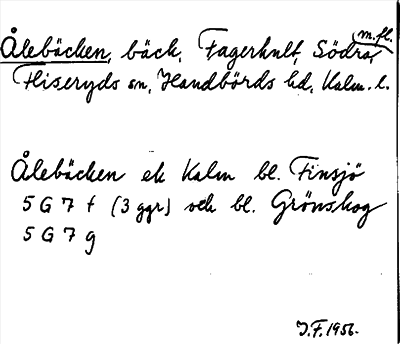 Ålebäcken, bäck, Fagerhult, Södra, m.fl.
Fliseryds sn, Handbörds hd, Kalm. l.
Ålebäcken ek Kalm bl. Finsjö
5 G 7 f (3 ggr) och bl. Grönskog
5 G 7 g
J.F. 1956.